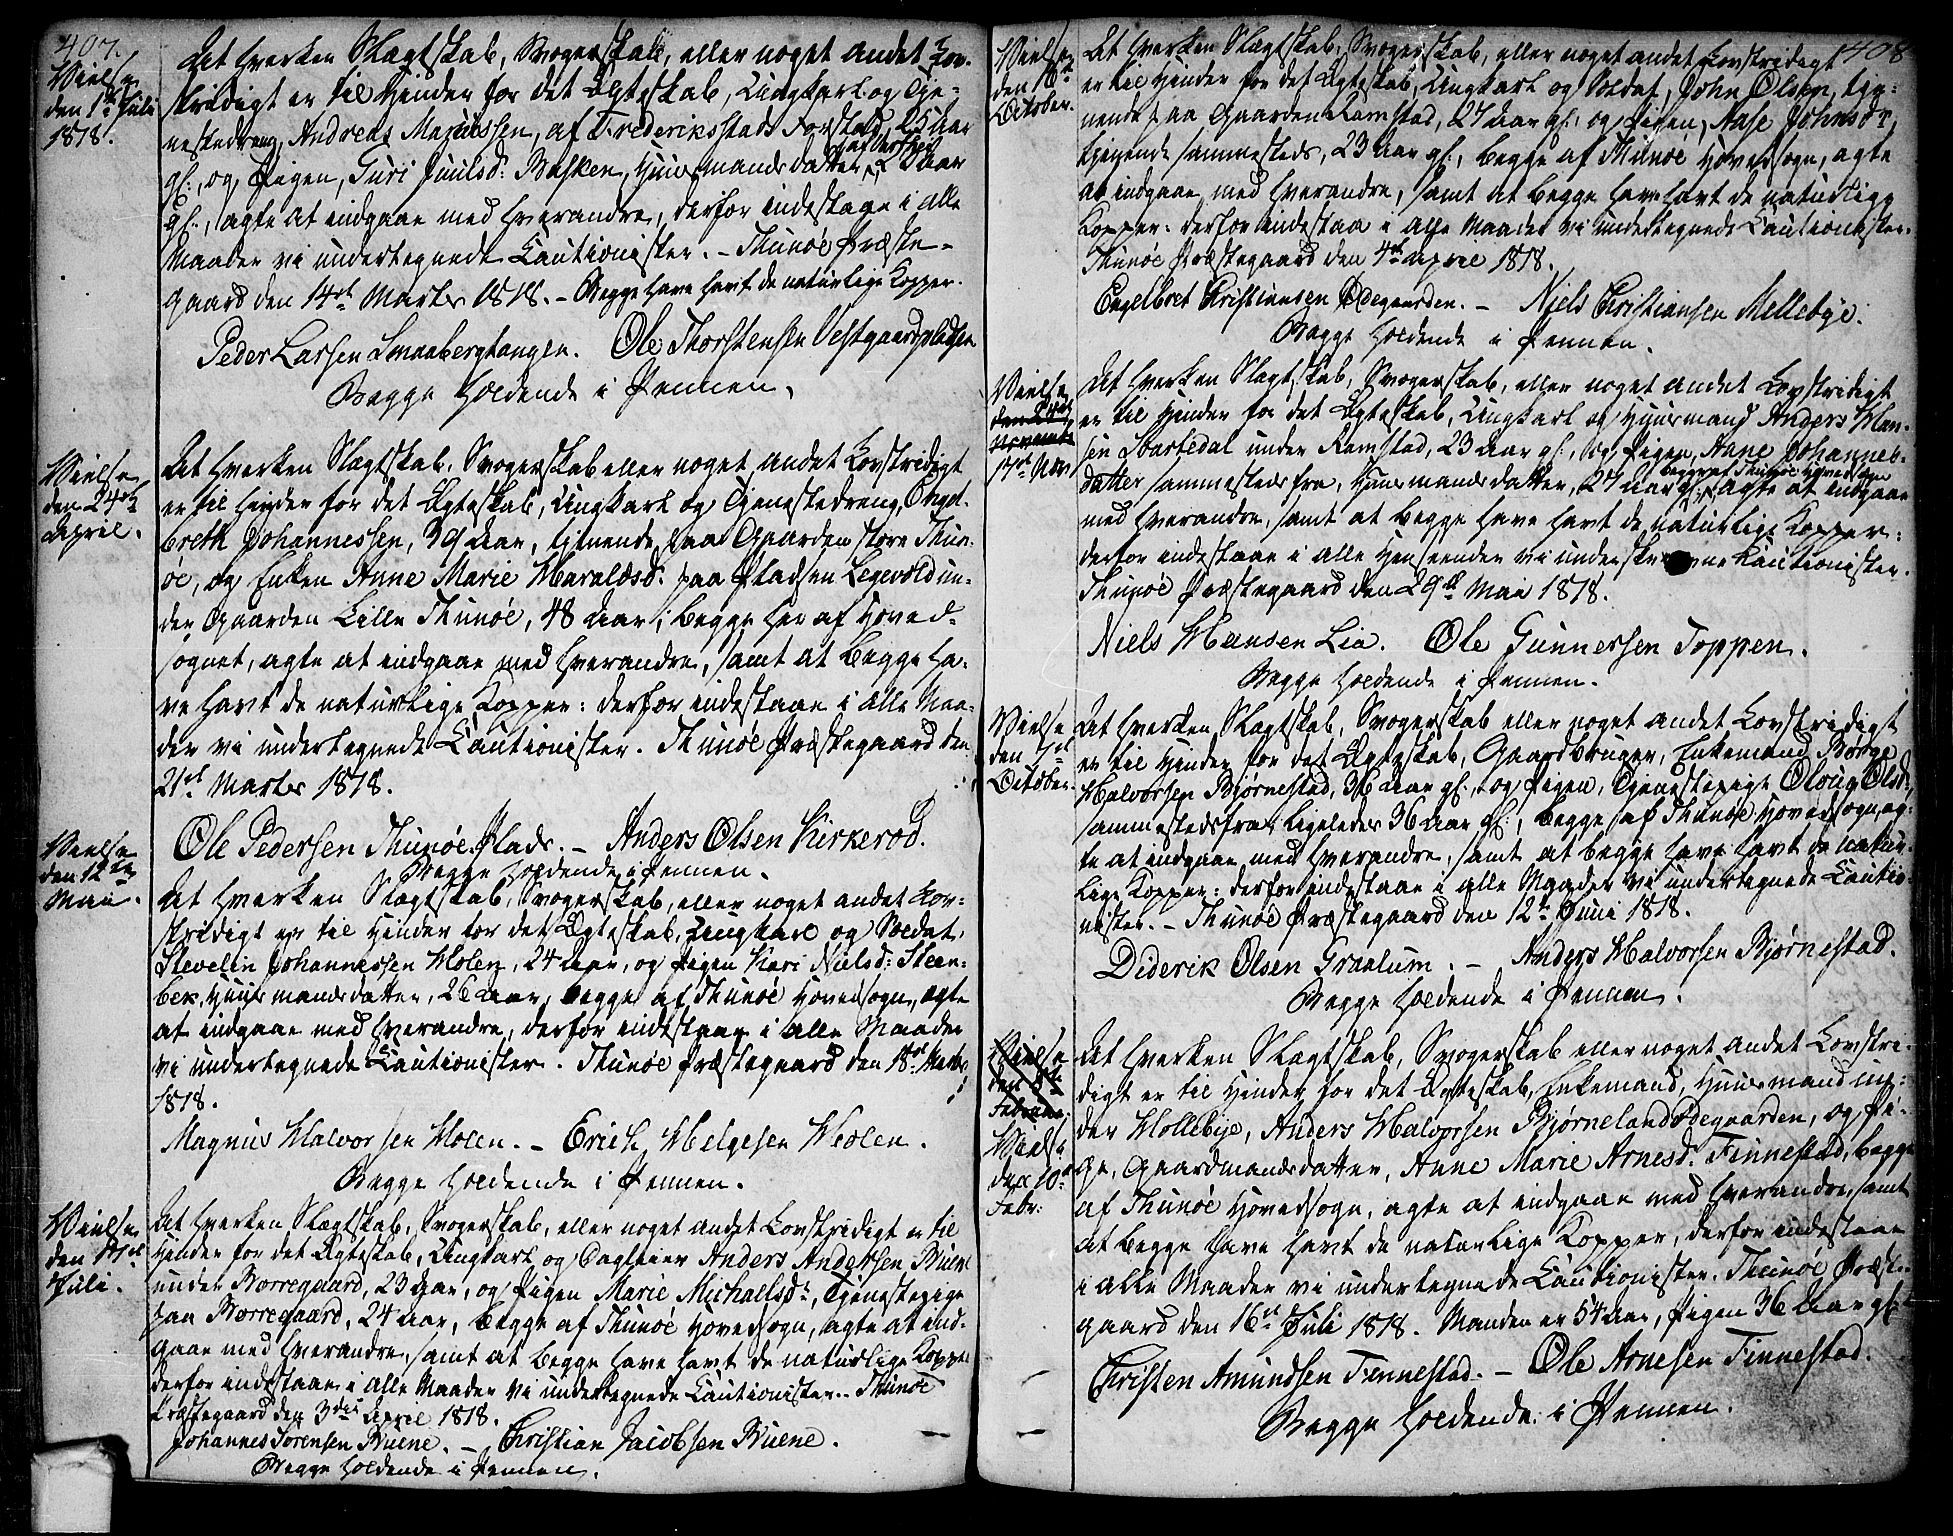 407.
Vielse
den 1ste Juli
1818.
At hverken Slægtskab, Svogerskab, eller noget andet Lov-
stridigt er til Hinder for det Ægteskab, Ungkarl og Tje-
nestedreng, Andreas Mariussen, af Frederiksstads Forstad, 25 Aar
gl:, og Pigen, Guri Juulsd: Basken, Huusmandsdatter, af Aar
gl:, agte at indgaae med hverandre, derfor indestaae i alle
Maader vi undertegnede Cautionister. - Thunöe Præste-
gaard den 14de Marts 1818. - Begge have havt de naturlige Kopper.
Peder Larsen Smaabergtangen. Ole Thorstensen Vestgaardpladsen
Begge holdende i Pennen.
Vielse
den 24de
April.
At hverken Slægtskab, Svogerskab eller noget andet Lovstridigt
er til Hinder for det Ægteskab, Ungkarl og Tjenestedreng, Engel-
breth Johannessen, 39 Aar, tjenende paa Gaarden store Thun-
öe, og Enken Anne Marie Haraldsd: paa Pladsen Legevold un-
der Gaarden Lille Thunöe, 48 Aar; begge her af Hoved-
sognet, agte at indgaae med hverandre, samt at begge ha-
ve havt de naturlige Kopper: derfor indestaae i alle Maa-
der vi undertegnede Cautionister. Thunöe Præstegaard den
21de Marts 1818.
Ole Pedersen Thunöe Plads. - Anders Olsen Kirkeröd.
Begge holdende i Pennen.
Vielse
den 12te
Mai.
At hverken Slægtskab, Svogerskab, eller noget andet Lov-
stridigt er til Hinder for det Ægteskab, Ungkarl og Soldat,
Stevelin Johannessen Holen, 24 Aar, og Pigen Kari Nielsd: Steen-
bek, Huusmandsdatter, 26 Aar, begge af Thunöe Hovedsogn, agte
at indgaae med hverandre, derfor indestaae i alle Maader
vi undertegnede Cautionister. Thunöe Præstegaard den 18de Marts
1818.
Magnus Halvorsen Holen. - Erich Helgesen Holen.
Begge holdende i Pennen.
Vielse
den 17de
Juli.
At hverken Slægtskab, Svogerskab, eller noget andet Lovstridigt er til
Hinder for det Ægteskab, Ungkarl og Dagleier Anders Andersen Buene
under Borregaard, 23 Aar, og Pigen Marie Michaelsdr, Tjenestepige
paa Borregaard, 24 Aar, begge af Thunöe Hovedsogn, agte at ind-
gaae med hverandre, samt at begge have havt de naturlige Kopper
derfor indestaae i alle Maader vi undertegnede Cautionister. - Thunöe
Præstegaard den 3die April 1818.
Johannes Sörensen Buene. - Christian Jacobsen Buene.
Begge holdende i Pennen.
1408
Vielse
den 16de
October.
At hverken Slægtskab, Svogerskab, eller noget andet Lovstridigt
er til Hinder for det Ægteskab, Ungkarl og Soldat, John Olsen, tje-
nende paa Gaarden Ramstad, 27 Aar gl: og Pigen, Aase Johnsdr,
tjenende sammesteds, 23 Aar gl:, begge af Thunöe Hovedsogn, agte
at indgaae med hverandre, samt at begge have havt de naturlige
Kopper: derfor indestaa i alle Maader vi undertegnede Cautionister.
Thunöe Præstegaard den 4de April 1818.
Engelbret Christiansen Ödegaarden. - Niels Christiansen Mellebye.
Begge holdende i Pennen.
Vielse
den 24de
November
17de Nov:
At hverken Slægtskab, Svogerskab, eller noget andet Lovstridigt
er til Hinder for det Ægteskab, Ungkarl og Huusmand Anders Han-
sen Svartedal under Ramstad, 23 Aar gl:, og Pigen, Anne Johannes-
datter sammestedsfra, Huusmandsdatter, 27 Aar gl:, begge af Thunöe Hovedsogn agte at indgaae
med hverandre, samt at begge have havt de naturlige Kopper:
derfor indestaae i alle Henseender vi underskrevne Cautionister.
Thunöe Præstegaard den 29de Mai 1818.
Niels Hansen Lia. Ole Gunnersen Toppen.
Begge holdende i Pennen.
Vielse
den 7de
October.
At hverken Slægtskab, Svogerskab eller noget andet Lovstridigt
er til Hinder for det Ægteskab, Gaardbruger, Enkemand Börge
Halvorsen Björnestad, 36 Aar gl:, og Pigen, Tjenestepige Oloug Olsdr
sammestedsfra, ligeledes 36 Aar gl:, begge af Thunöe Hovedsogn, ag-
te at indgaae med hverandre, samt at begge have havt de natur-
lige Kopper: derfor indestaae i alle Maader vi undertegnede Cautio-
nister. - Thunöe Præstegaard den 12te Juni 1818.
Diderik Olsen Graalum. - Anders Halvorsen Björnestad.
Begge holdende i Pennen.
Vielse
Februar.
Vielse
den 10de
Febr:
At hverken Slægtskab, Svogerskab eller noget andet Lovstri-
digt er til Hinder for det Ægteskab, Enkemand, Huusmand un-
der Mollebye, Anders Halvorsen Björnelandödegaarden, og Pi-
ge, Gaardmandsdatter, Anne Marie Arnesd: Finnestad, begge
af Thunöe Hovedsogn, agte at indgaae med hverandre, samt
at begge have havt de naturlige Kopper, derfor indestaae
i alle Maader vi undertegnede Cautionister. Thunöe Præste-
gaard den 16de Juli 1818. Manden er 54 Aar, Pigen 36 Aar gl:
Christen Amundsen Finnestad. - Ole Arnesen Finnestad.
Begge holdende i Pennen.